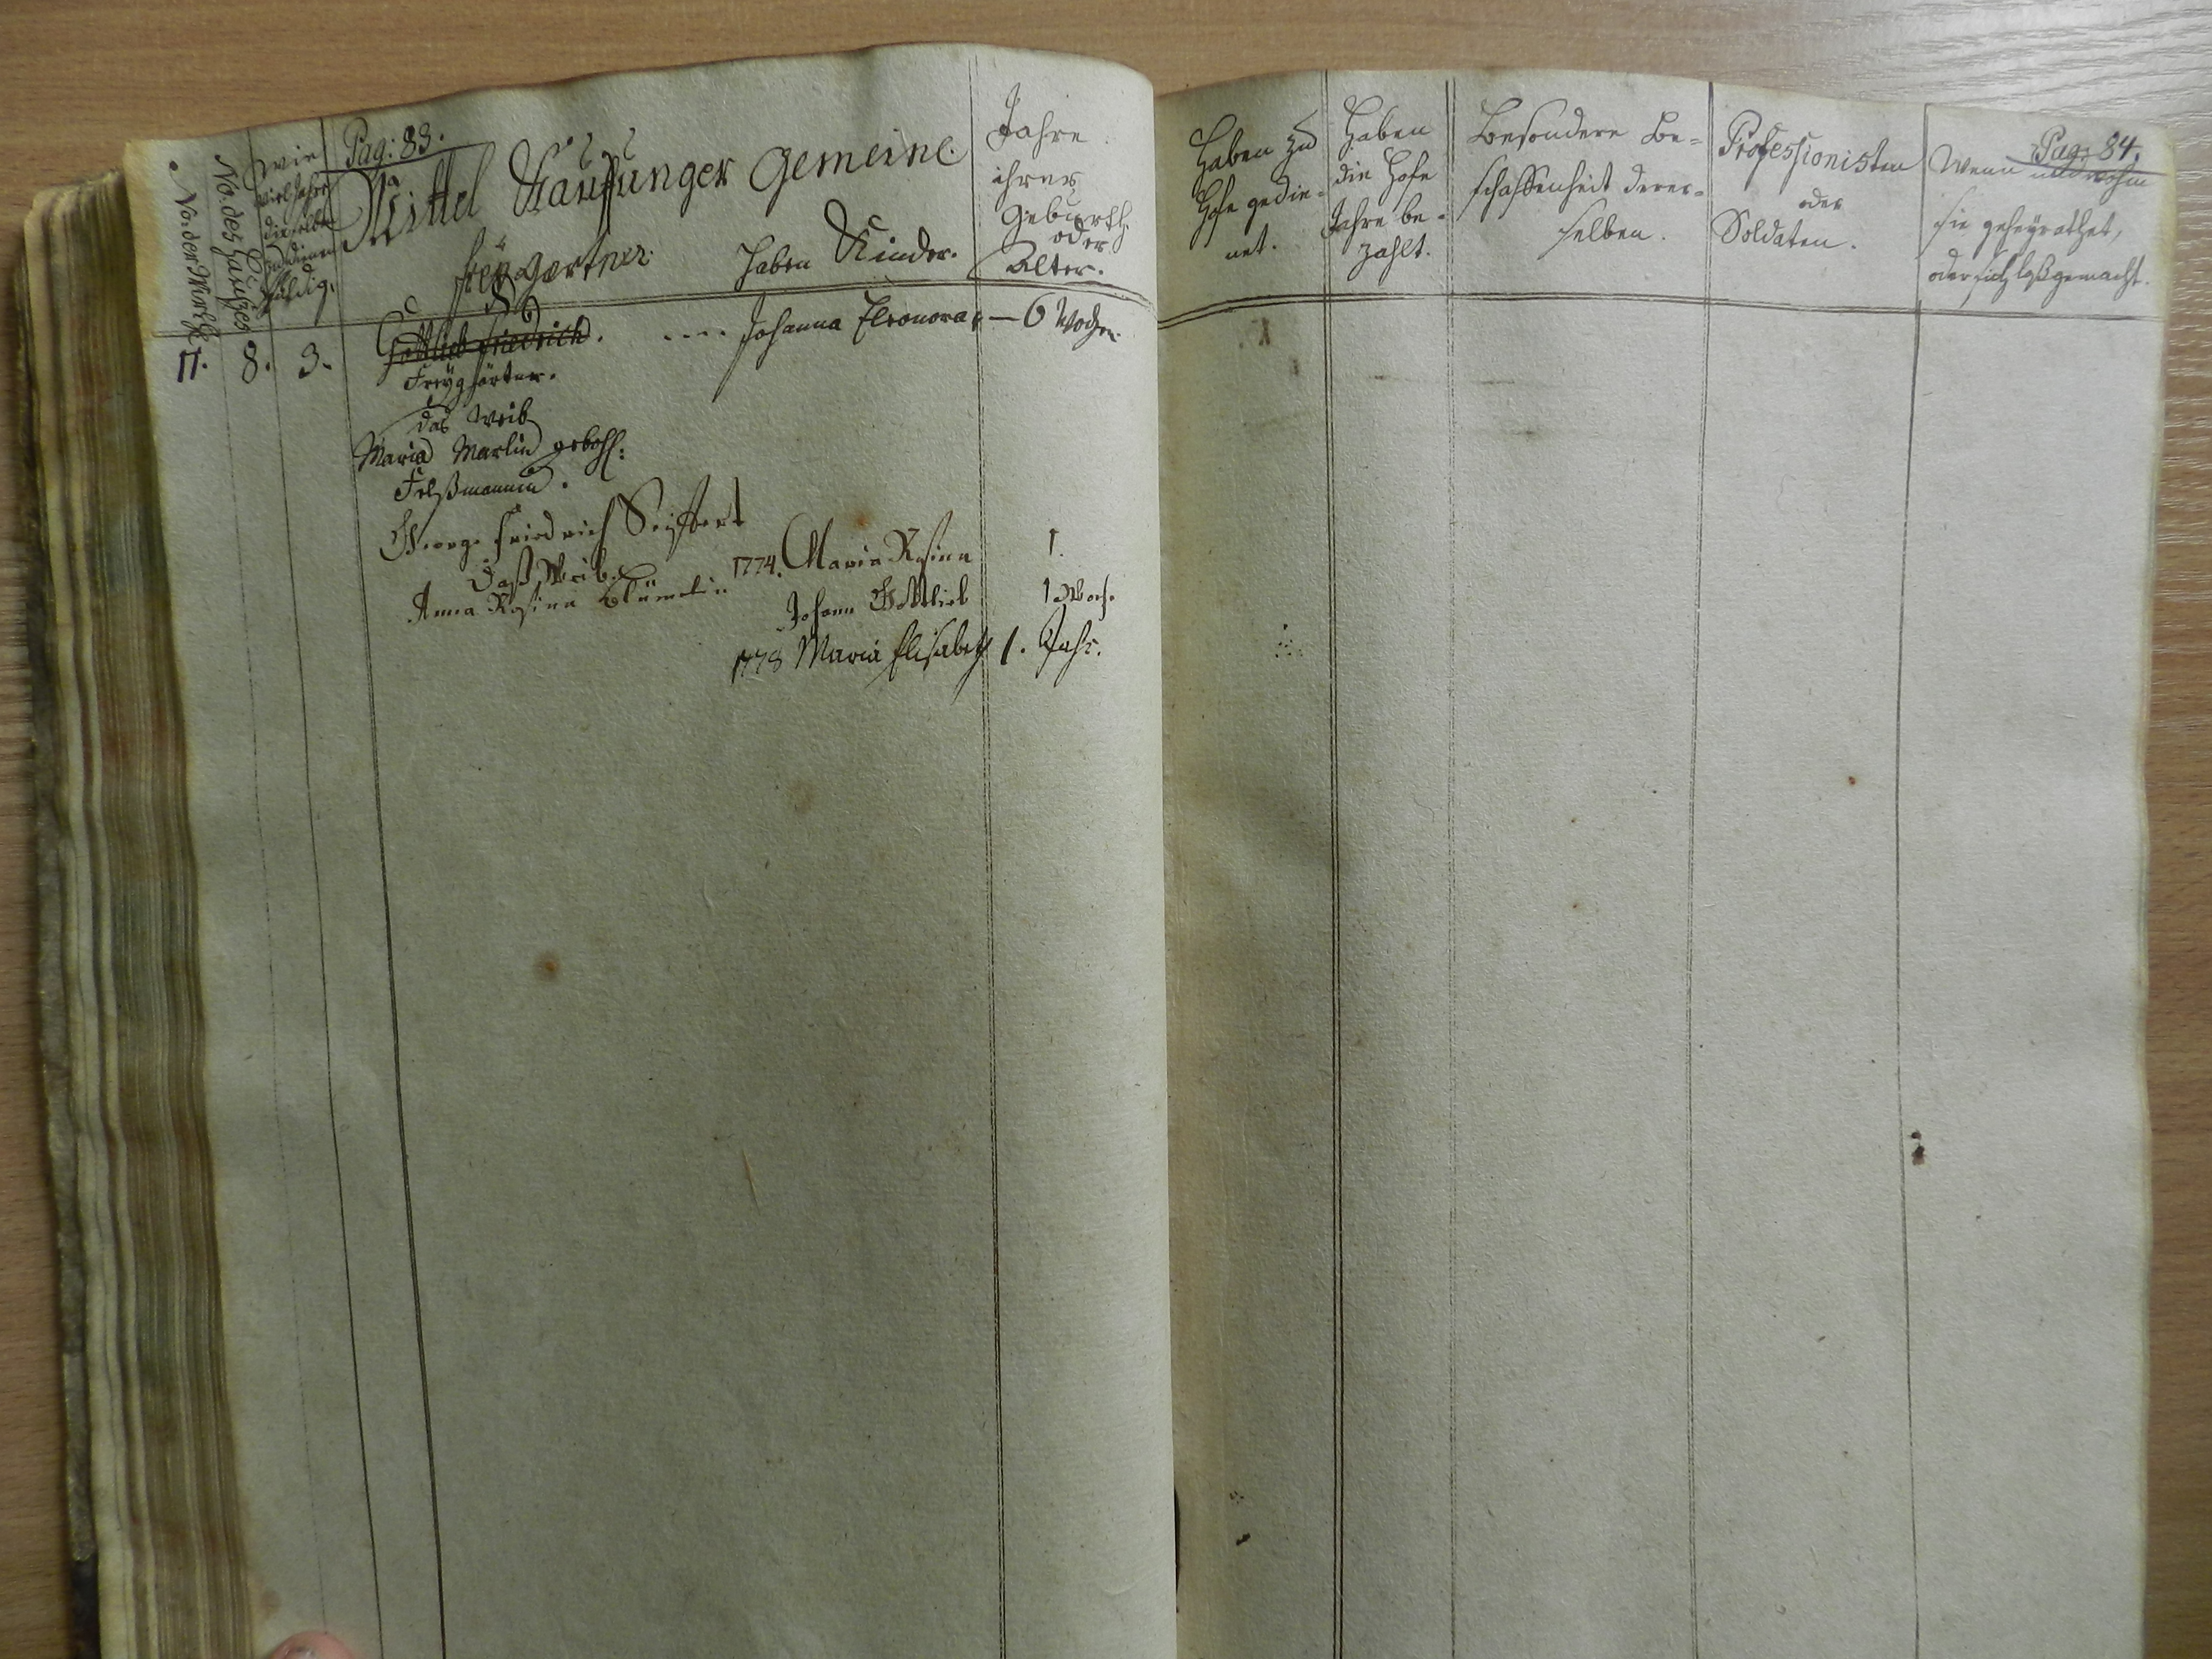 No. der Wirthe
No. des Hauses
Wie
viel Jahre
dieselbe
zu dienen
schuldig.
Pag: 83.
Mittel Kauffunger Gemeine.
freygærtner.
Haben Kinder.
Jahre
ihrer
Geburth
oder
Alter.
Haben zu
Hofe gedie-
net.
Haben
die Hofe
Jahre be-
zahlt.
Besondere Be-
schaffenheit derer-
selben.
Professionisten
oder
Soldaten.
Pag: 84.
Wenn und wohin
sie geheyrathet,
oder sich loßgemacht.
11. 8. 3. Gottlieb Friedrich. ---- Johanna Eleonora — 6 Wochen
Freygärtner.
das Weib
Maria gebohr:
George Friedrich Seiffert
Daß Weib
Anna Rosina
1774. Maria Rosina 1.
Johann Gottlieb 1 Woch.
1778 Maria Elisabeth 1. Jahr.